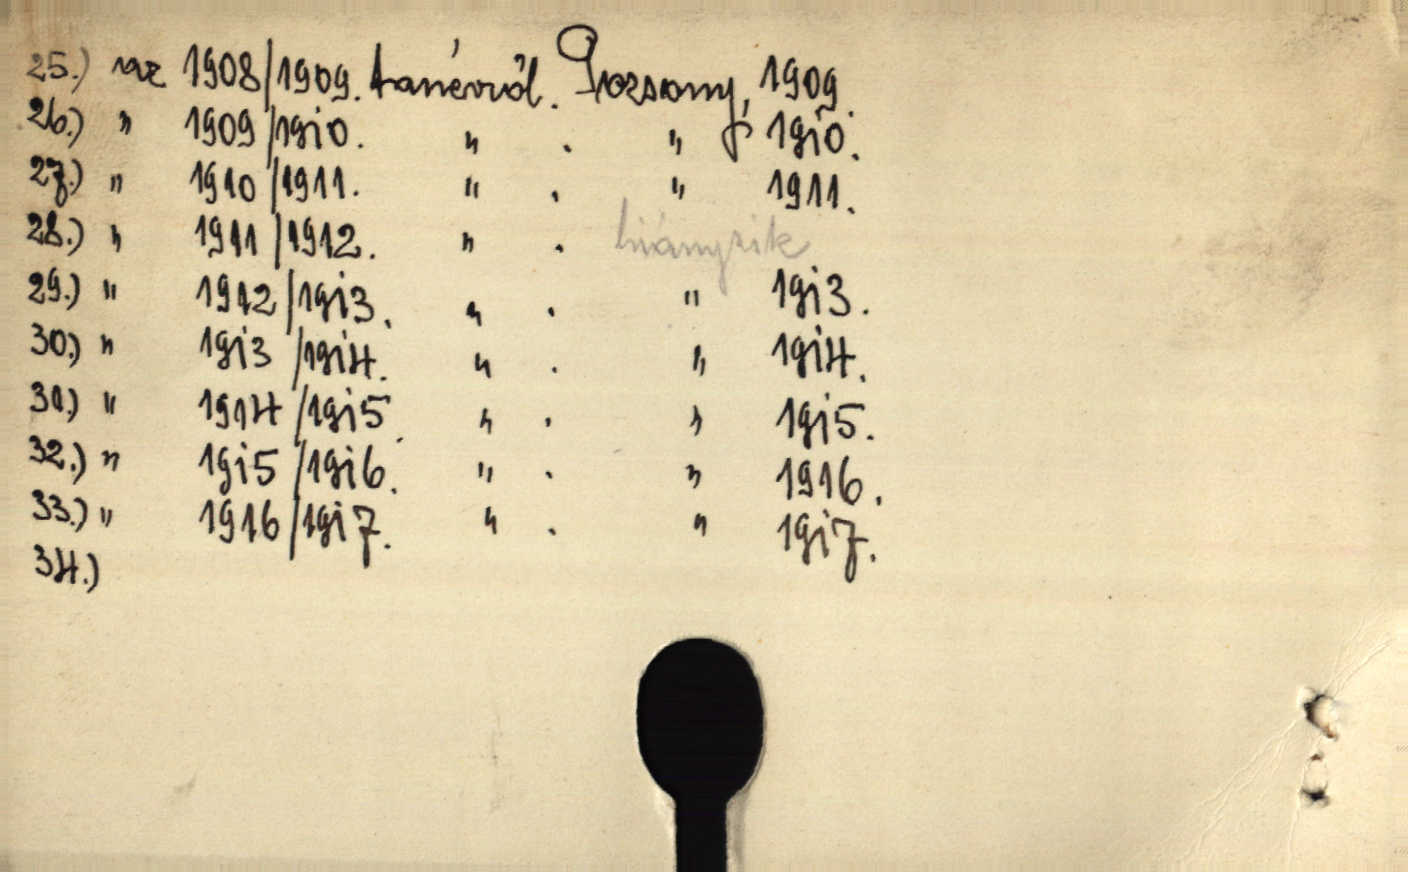 25.) az 1908/1909. tanévről. Pozsony, 1909.
26.) " 1909/1910. " . " , 1910.
27.) " 1910/1911. " . " 1911.
28.) " 1911/1912. " . hiányzik
29.) " 1912/1913. " . " 1913.
30.) " 1913/1914. " . " 1914.
31.) " 1914/1915. " . " 1915.
32.) " 1915/1916. " . " 1916.
33.) " 1916/1917. " . " 1917.
34.)